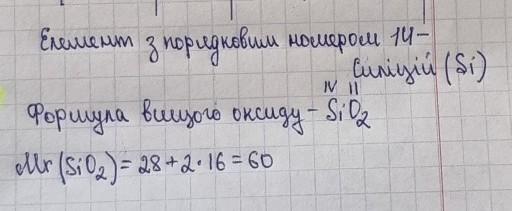 Елемент з порядковим номером 14 –
Силіцій (Si)
IV II
Формула вищого оксиду – SiO₂
Mr (SiO₂) = 28 + 2 · 16 = 60